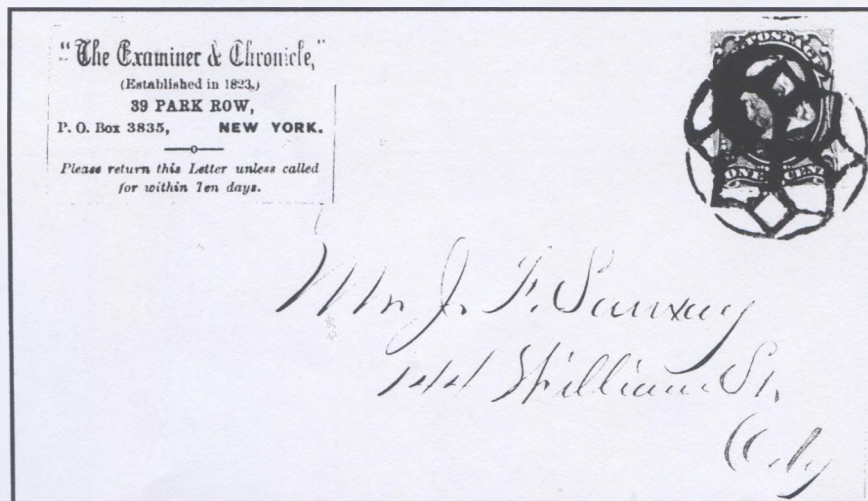 "The Examiner & Chronicle,"
(Established in 1823.)
39 PARK ROW,
P. O. Box 3835, NEW YORK.
Please return this Letter unless called
for within Ten days.
POSTAGE
ONE CENT
Mr J. F. Sanxay
144 William St.
City